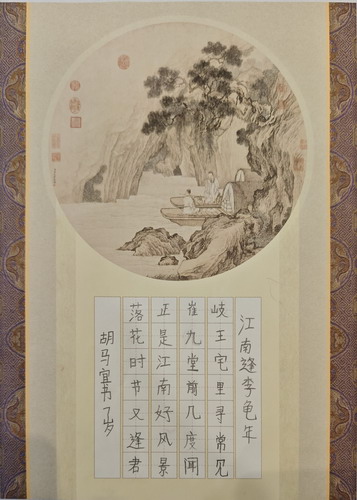 江南逢李龟年
岐王宅里寻常见
崔九堂前几度闻
正是江南好风景
落花时节又逢君
胡马宜书7岁